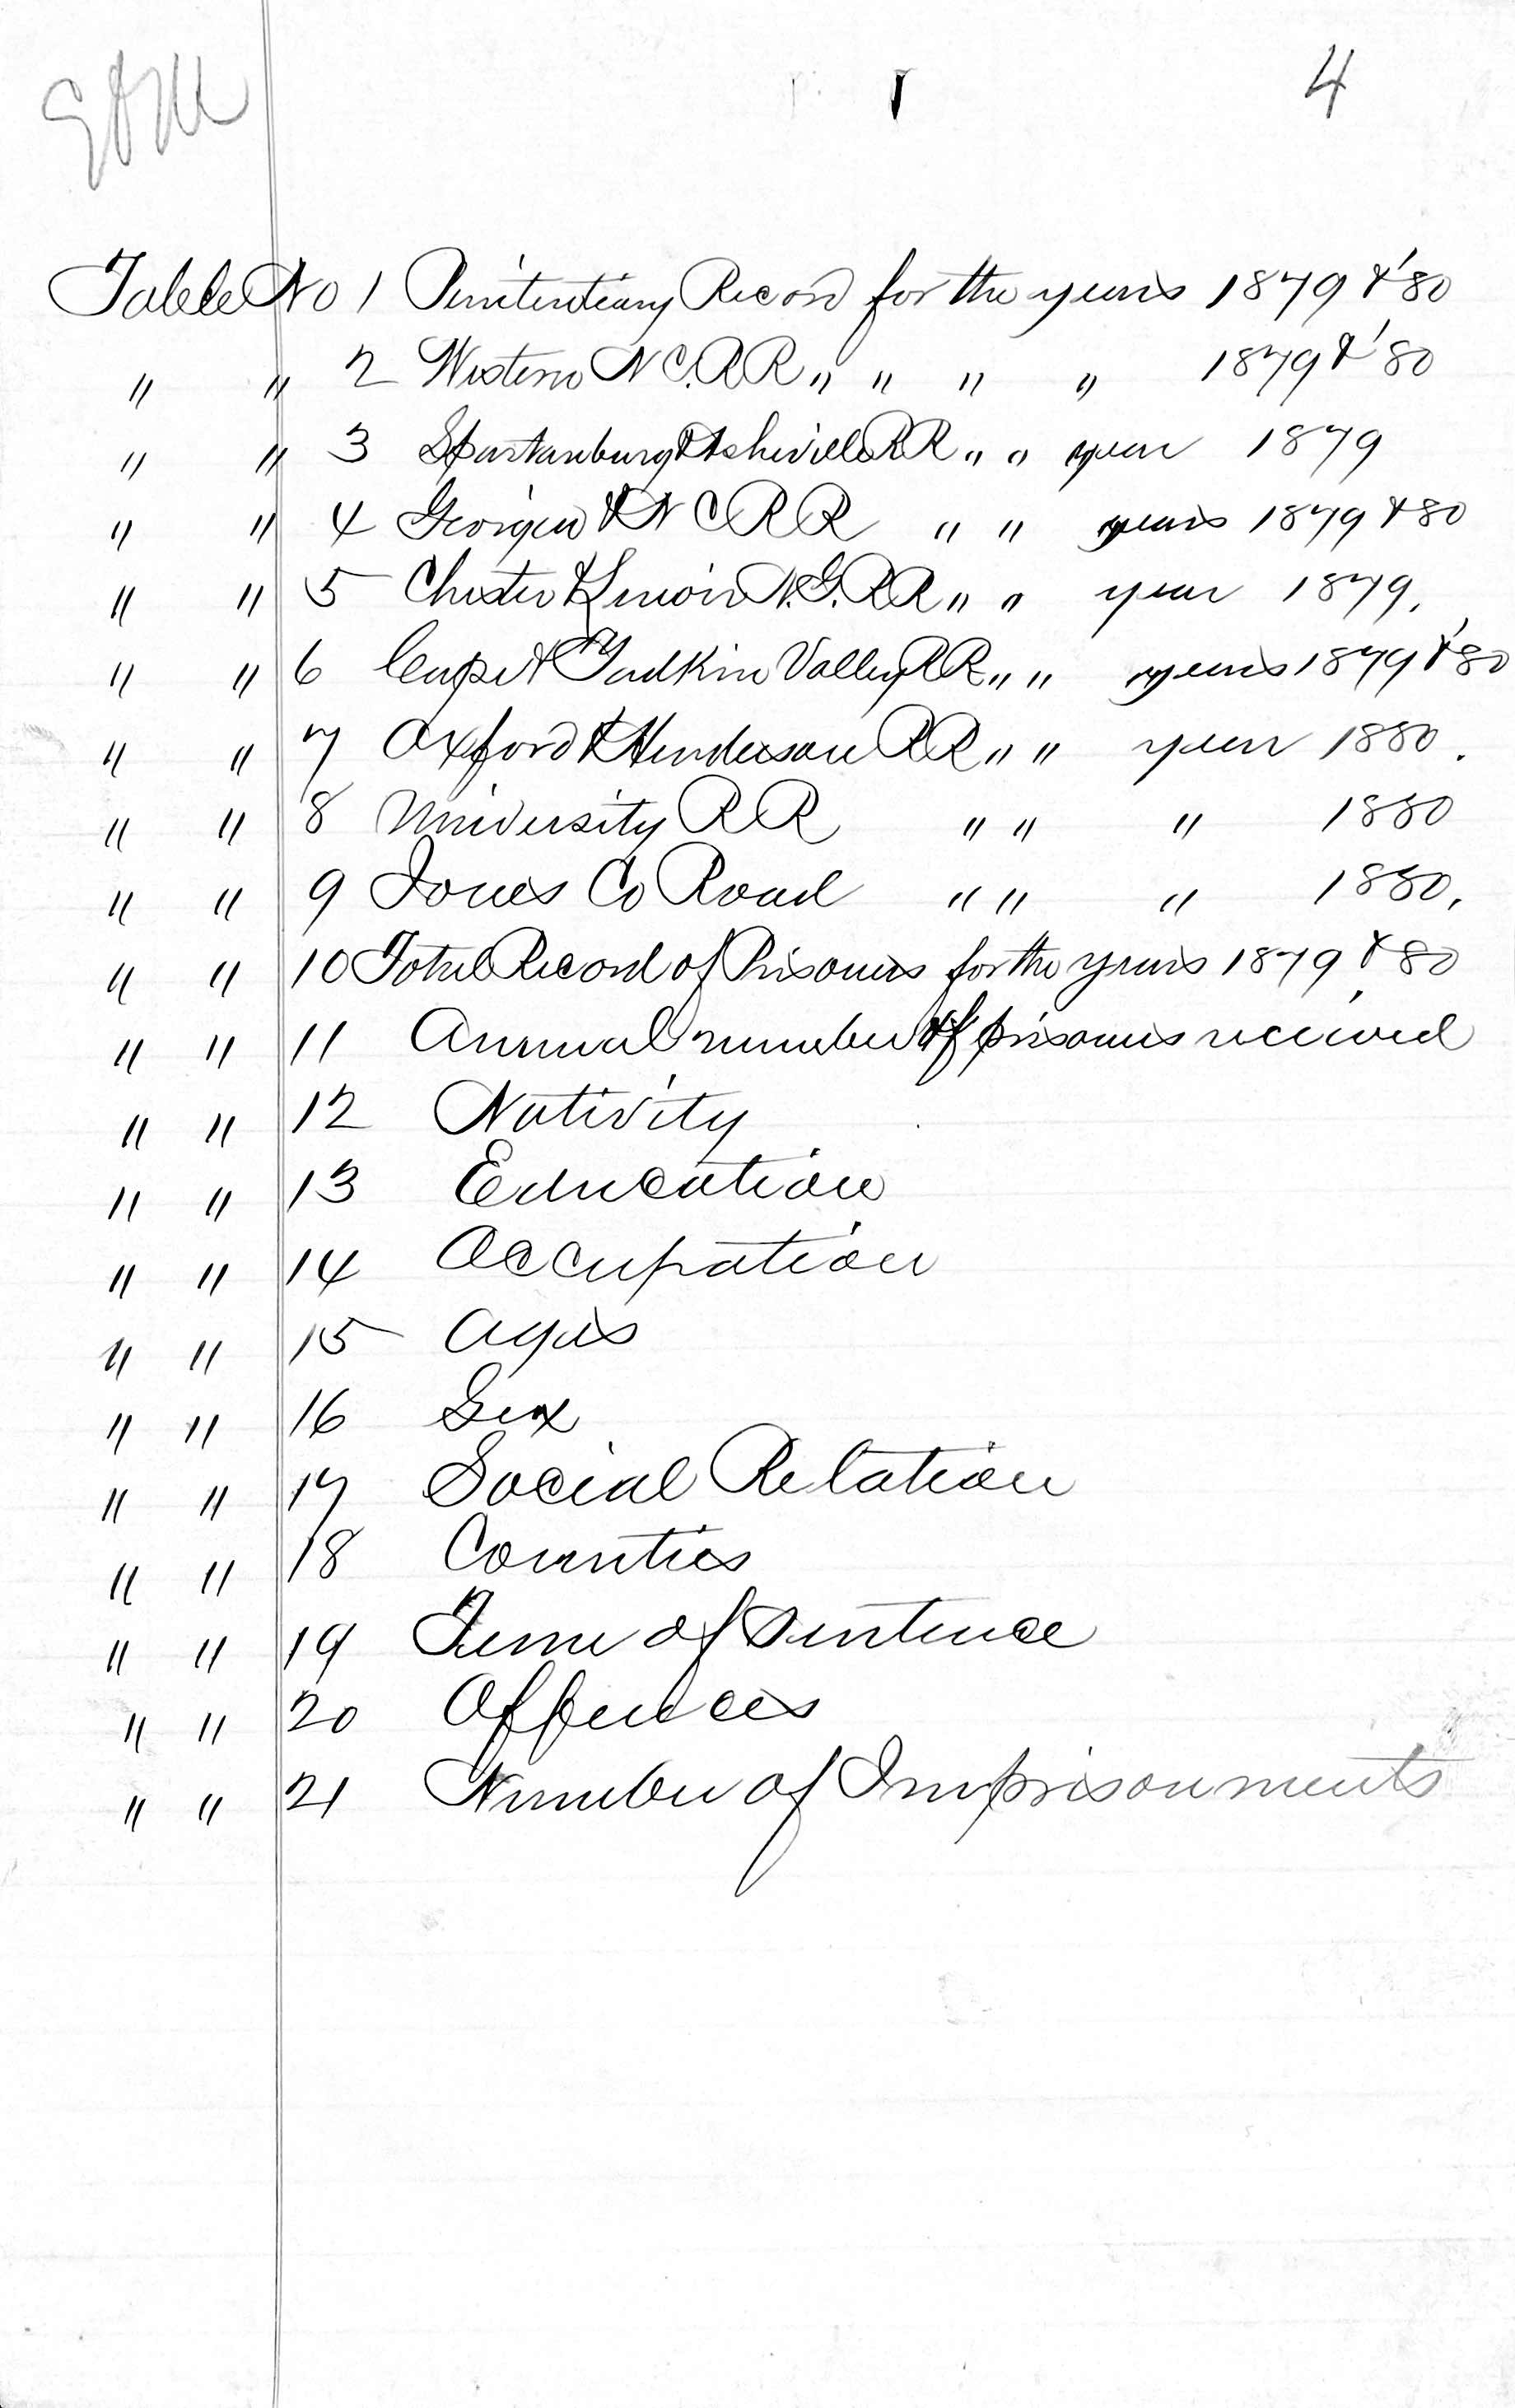 4
Table No 1 Penitentiary Record for the years 1879 & '80
" " 2 Western N C. R R " " " " 1879 & '80
" " 3 Spartanburg & Asheville R R " " year 1879
" " 4 Georgia & N C R R " " years 1879 & 80
" " 5 Chester & Lenoir N. G. R R " " year 1879.
" " 6 Cape F & Yadkin Valley R R " " years 1879 & '80
" " 7 Oxford & Henderson R R " " year 1880.
" " 8 University R R " " " 1880
" " 9 Jones Co Road " " " 1880.
" " 10 Total Record of Prisoners for the years 1879 & '80
" " 11 Annual number of prisoners received
" " 12 Nativity
" " 13 Education
" " 14 Occupation
" " 15 Ages
" " 16 Sex
" " 17 Social Relation
" " 18 Counties
" " 19 Term of Sentence
" " 20 Offences
" " 21 Number of Imprisonments